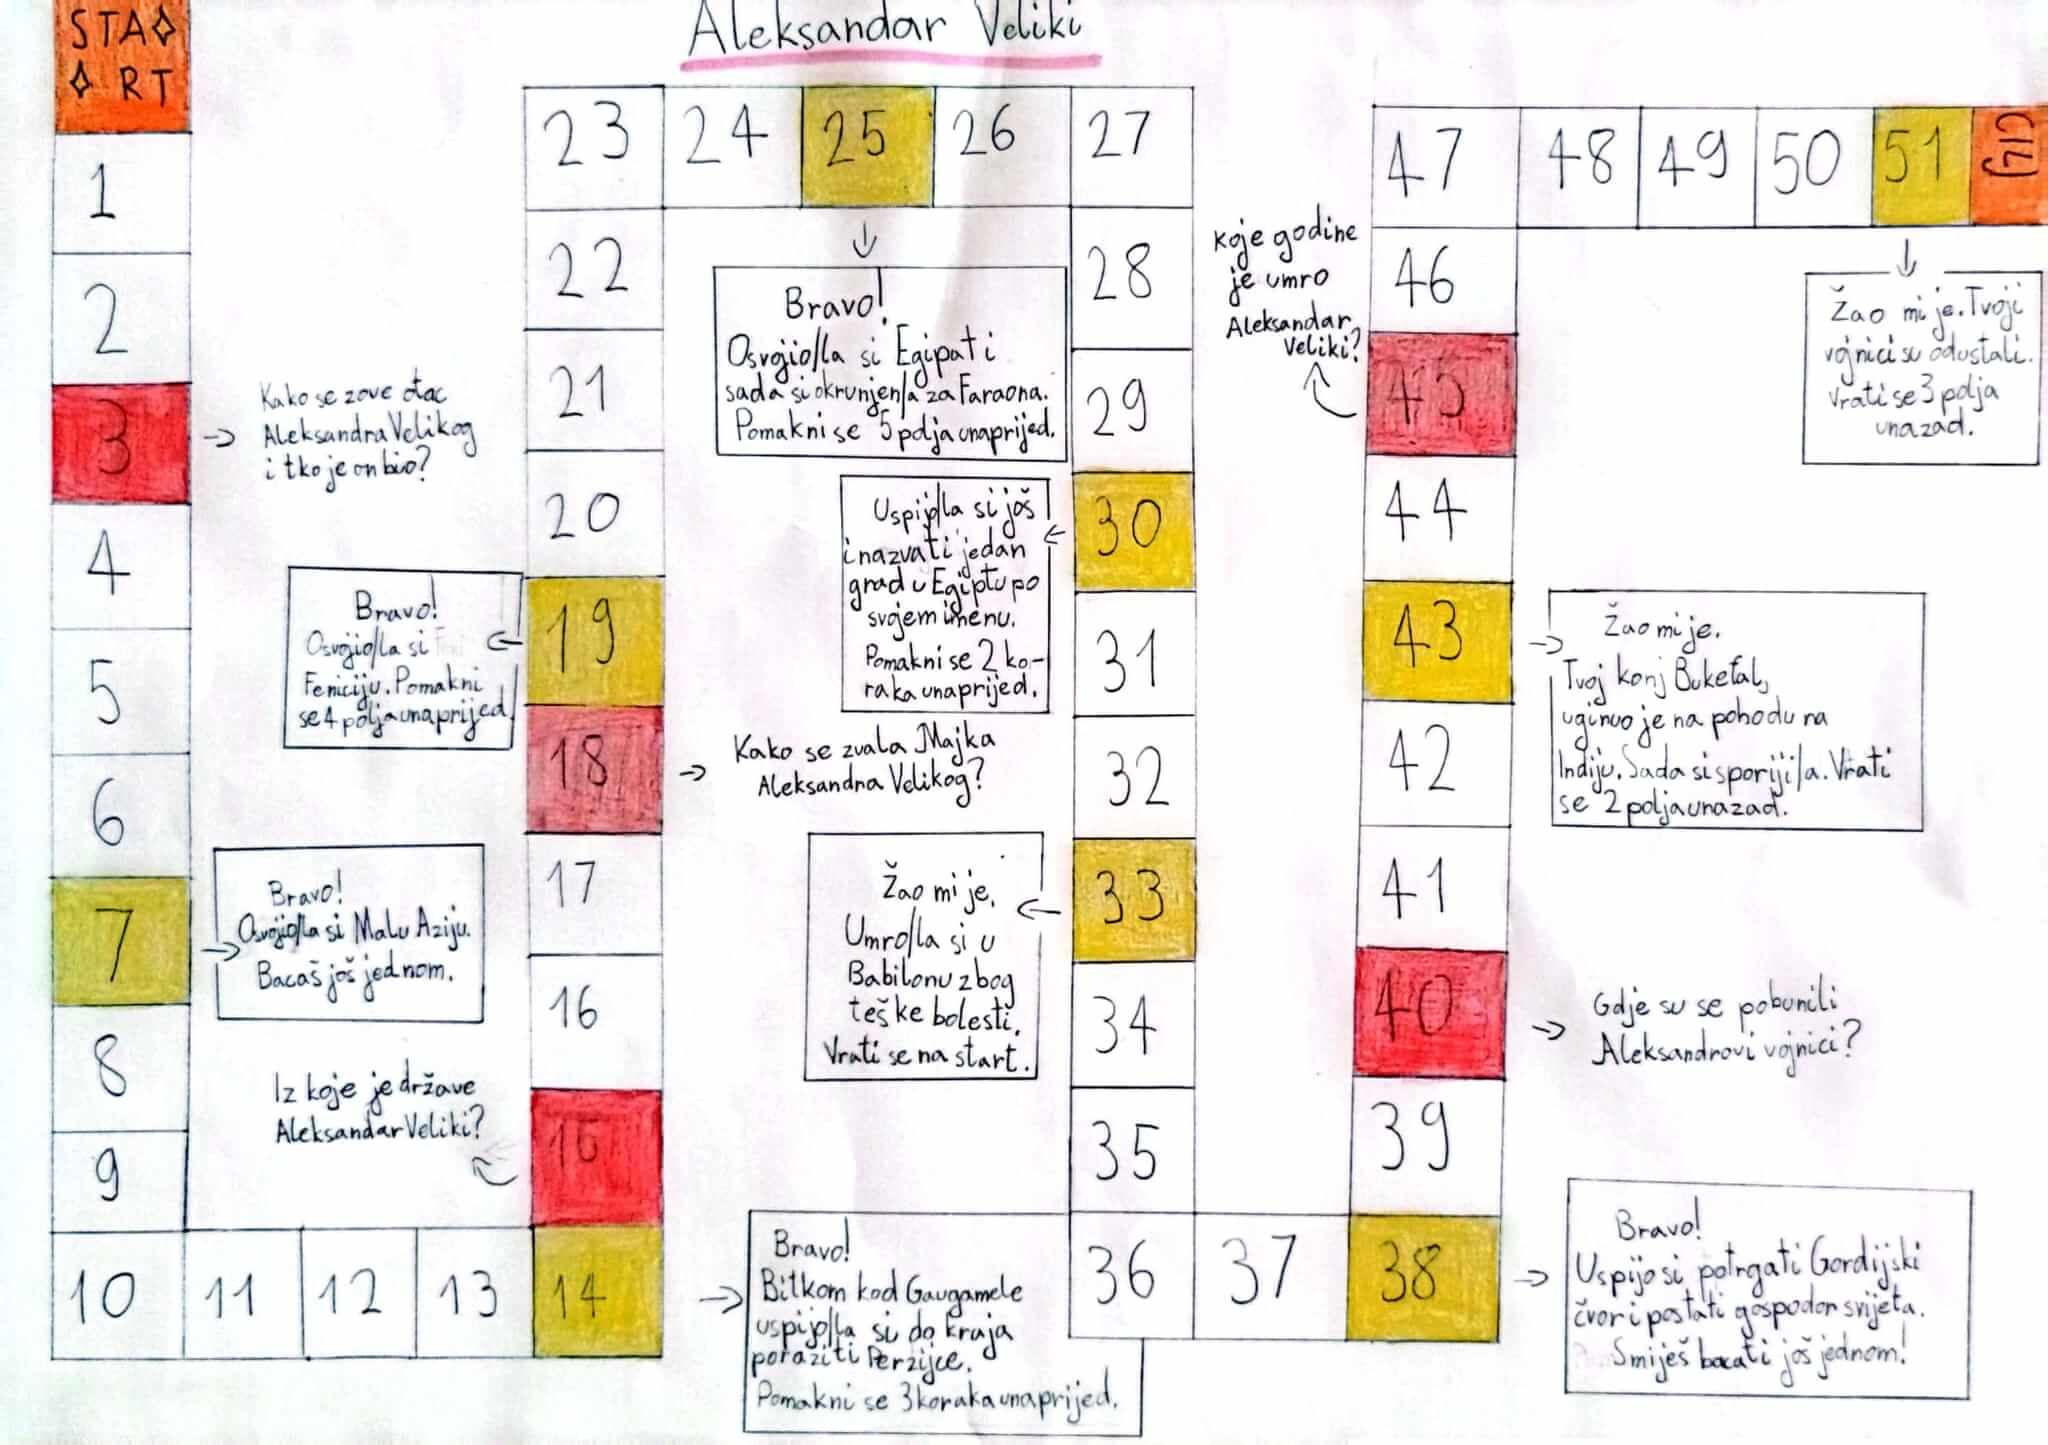 Aleksandar Veliki
STA
RT
1
2
3
Kako se zove otac
Aleksandra Velikog
i tko je on bio?
4
5
6
7
Bravo!
Osvojio/la si Malu Aziju.
Bacaš još jednom.
8
9
10
11
12
13
14
Bravo!
Bitkom kod Gaugamele
uspijo/la si do kraja
poraziti Perzijce.
Pomakni se 3 koraka unaprijed.
15
Iz koje je države
Aleksandar Veliki?
16
17
18
Kako se zvala Majka
Aleksandra Velikog?
19
Bravo!
Osvojio/la si
Feniciju. Pomakni
se 4 polja unaprijed
20
21
22
23
24
25
Bravo!
Osvojio/la si Egipat i
sada si okrunjen/a za Faraona.
Pomakni se 5 polja unaprijed.
26
27
28
29
30
Uspijo/la si još
i nazvati jedan
grad u Egiptu po
svojem imenu.
Pomakni se 2 ko-
raka unaprijed.
31
32
33
Žao mi je.
Umro/la si u
Babilonu zbog
teške bolesti.
Vrati se na start.
34
35
36
37
38
Bravo!
Uspijo si potrgati Gordijski
čvor i postati gospodar svijeta.
Smiješ bacati još jednom!
39
40
Gdje su se pobunili
Aleksandrovi vojnici?
41
42
43
Žao mi je.
Tvoj konj Bukefal,
uginuo je na pohodu na
Indiju. Sada si sporiji/a. Vrati
se 2 polja unazad.
44
45
Koje godine
je umro
Aleksandar
Veliki?
46
47
48
49
50
51
Žao mi je. Tvoji
vojnici su odustali.
Vrati se 3 polja
unazad.
CILJ